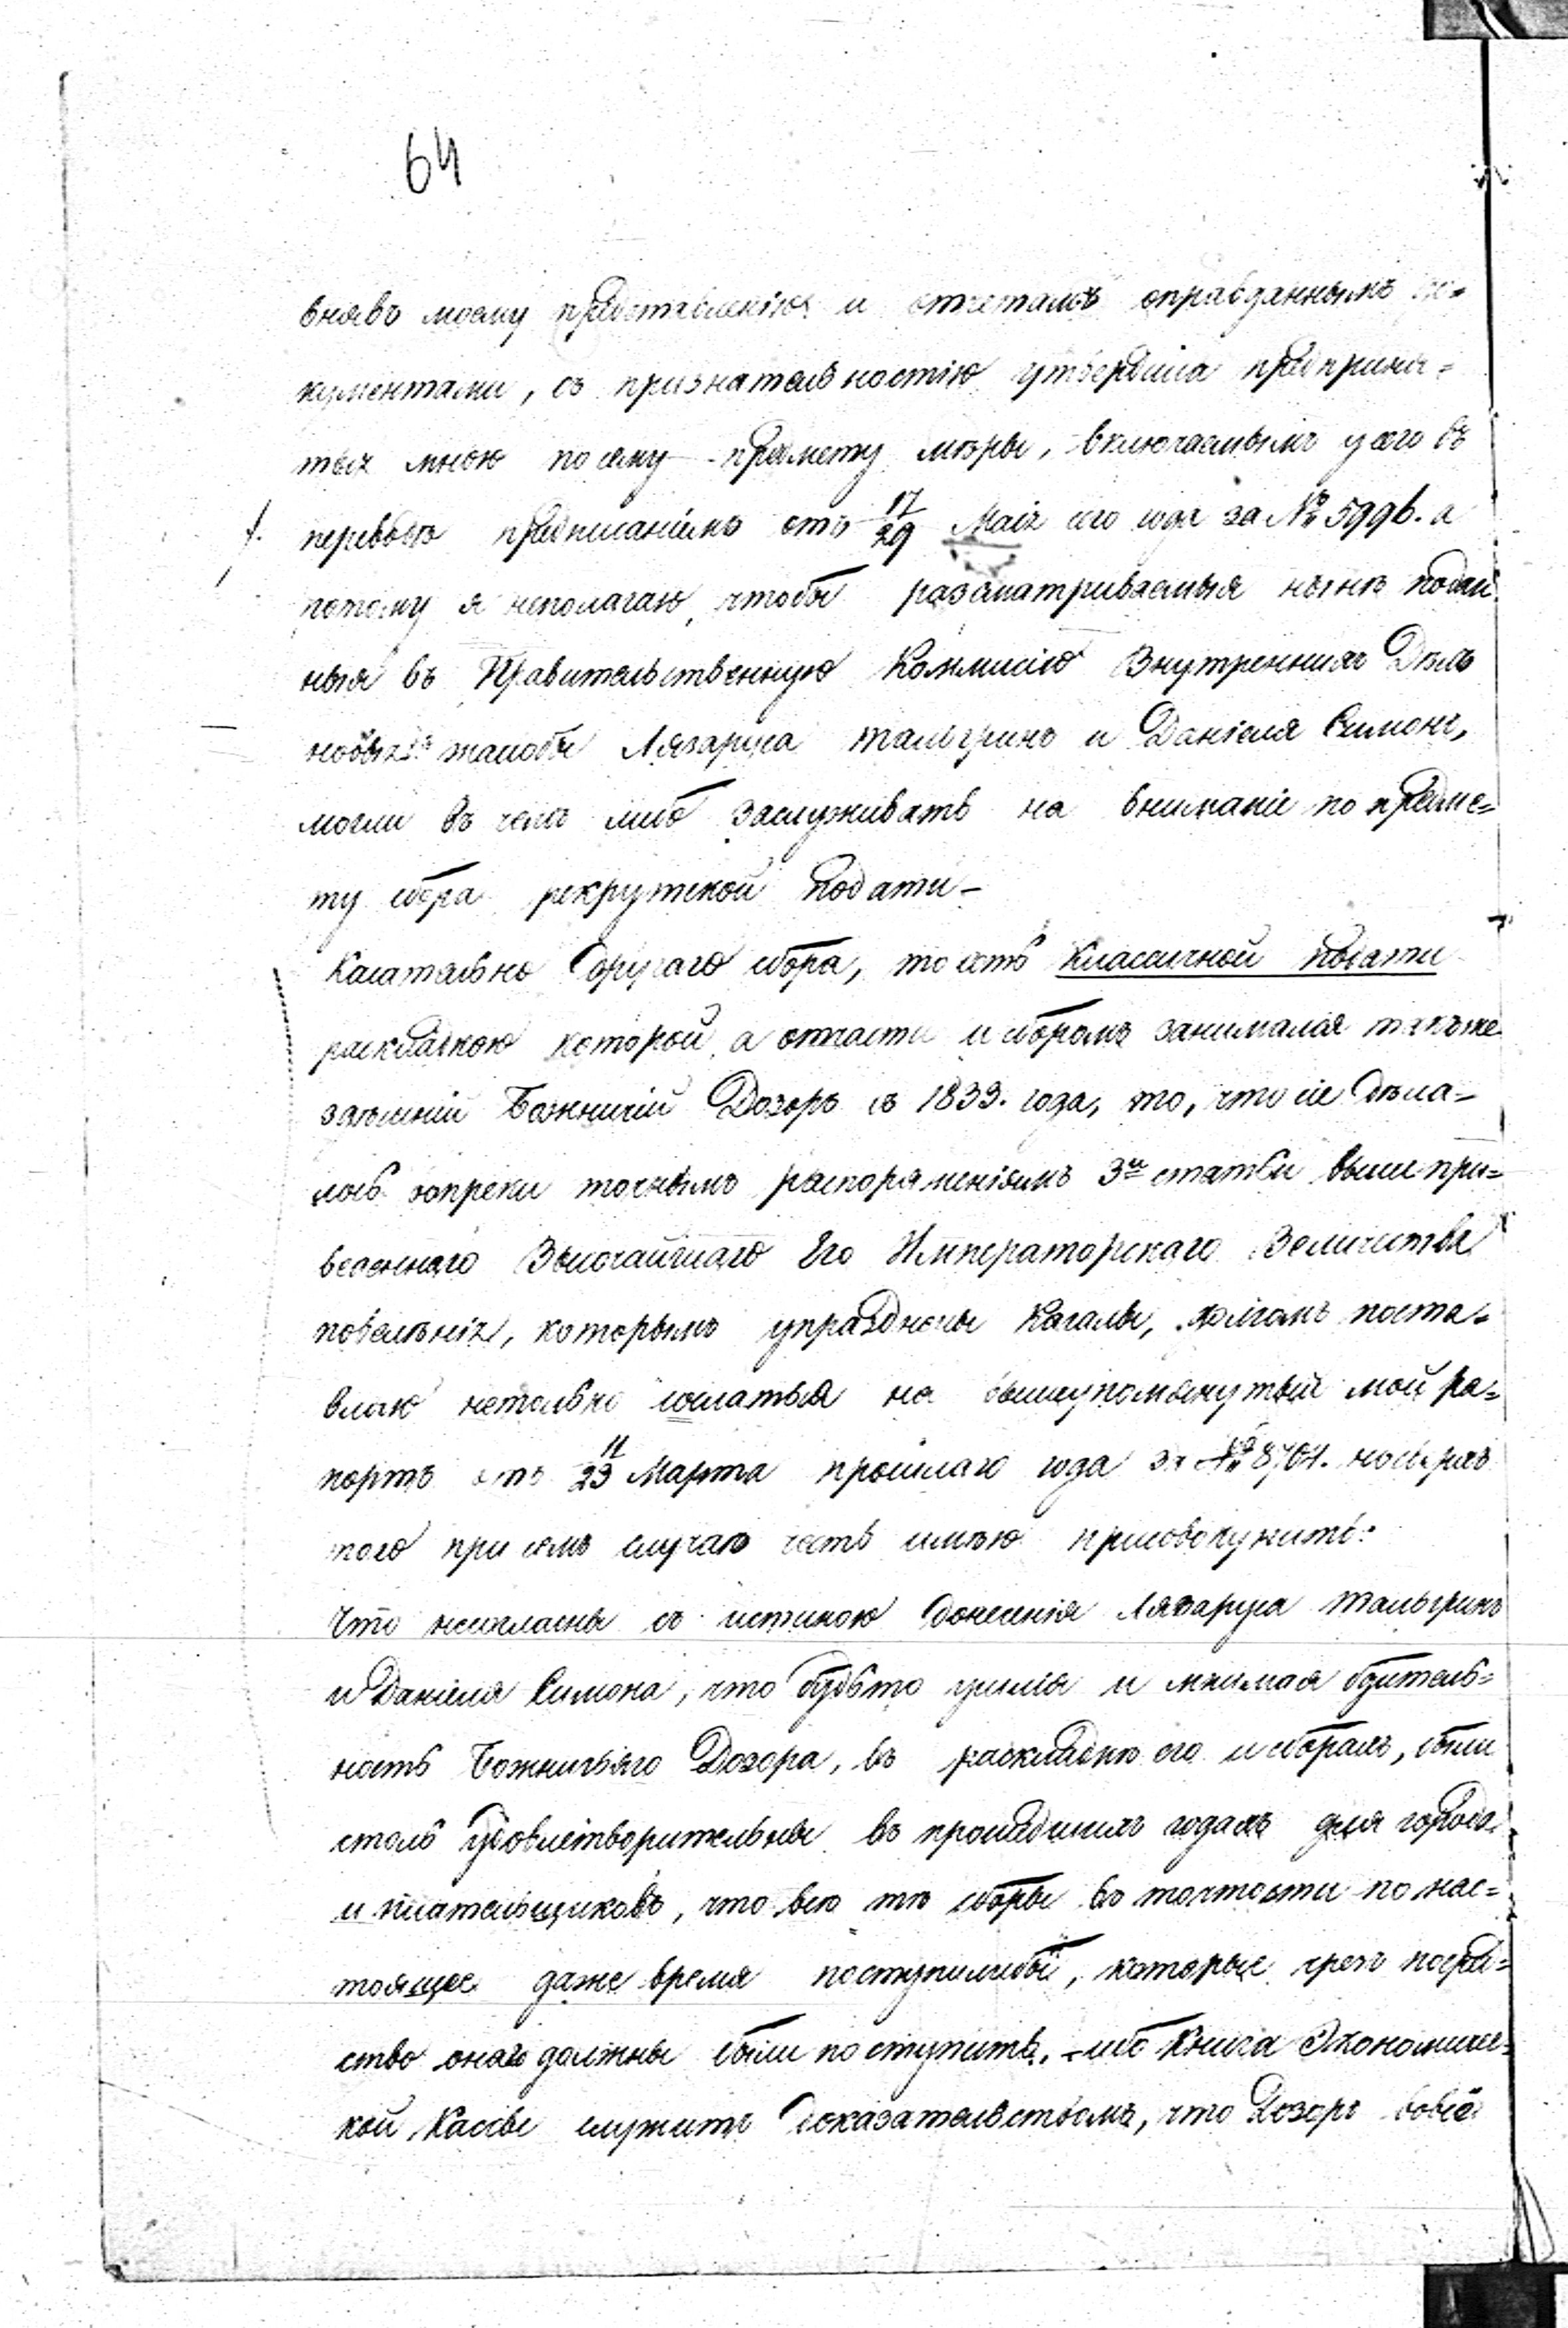 64
внявъ моему представленію и отчетамъ оправданнымъ до=
кументами, съ признательностію утвердила предприня=
тыя мною по сему предмету мѣры, включаемымъ у сего въ
переводѣ предписаніемъ отъ 17/29 Маія сего года за № 5996. а
потому я неполагаю, чтобы разсматриваемыя нынѣ подан
ныя въ Правительственную Коммисію Внутреннихъ Дѣлъ
новыя жалобы Лязаруса Тальгринъ и Даніеля Симонъ,
могли въ чемъ либо заслуживать на вниманіе по предме=
ту сбора рекрутской подати —
Касательно другаго сбора, то есть Классичной подати
раскладкою которой, а отчасти и сборомъ занимался такъже
здѣшній Божничій Дозоръ съ 1833. года, то, что сіе дѣла=
лось вопреки точнымъ распоряженіямъ 3й статьи выше при=
веденнаго Высочайшаго Его Императорскаго Величества
повелѣнія, которымъ упразднены Кагалы, долгомъ поста=
вляю нетолько сослаться на вышеупомянутый мой ра=
портъ отъ 11/23 Марта прошлаго года за № 8701. но сверхъ
того при семъ случаѣ честь имѣю присовокупить:
Что несогласны съ истиною донесенія Лязаруса Тальгринъ
и Даніеля Симона, что будьто усилія и мнимая бдитель=
ность Божничьяго Дозора, въ раскладкѣ его и сборахъ, были
столь удовлетворительны въ прошедшихъ годахъ для города
и плательщиковъ, что всѣ тѣ сборы въ точтости по нас=
тоящее даже время поступилибы, которые чрезъ посред=
ство онаго должны были поступить, — ибо Книга Экономичес=
кой Кассы служитъ доказательствомъ, что Дозоръ вовсе